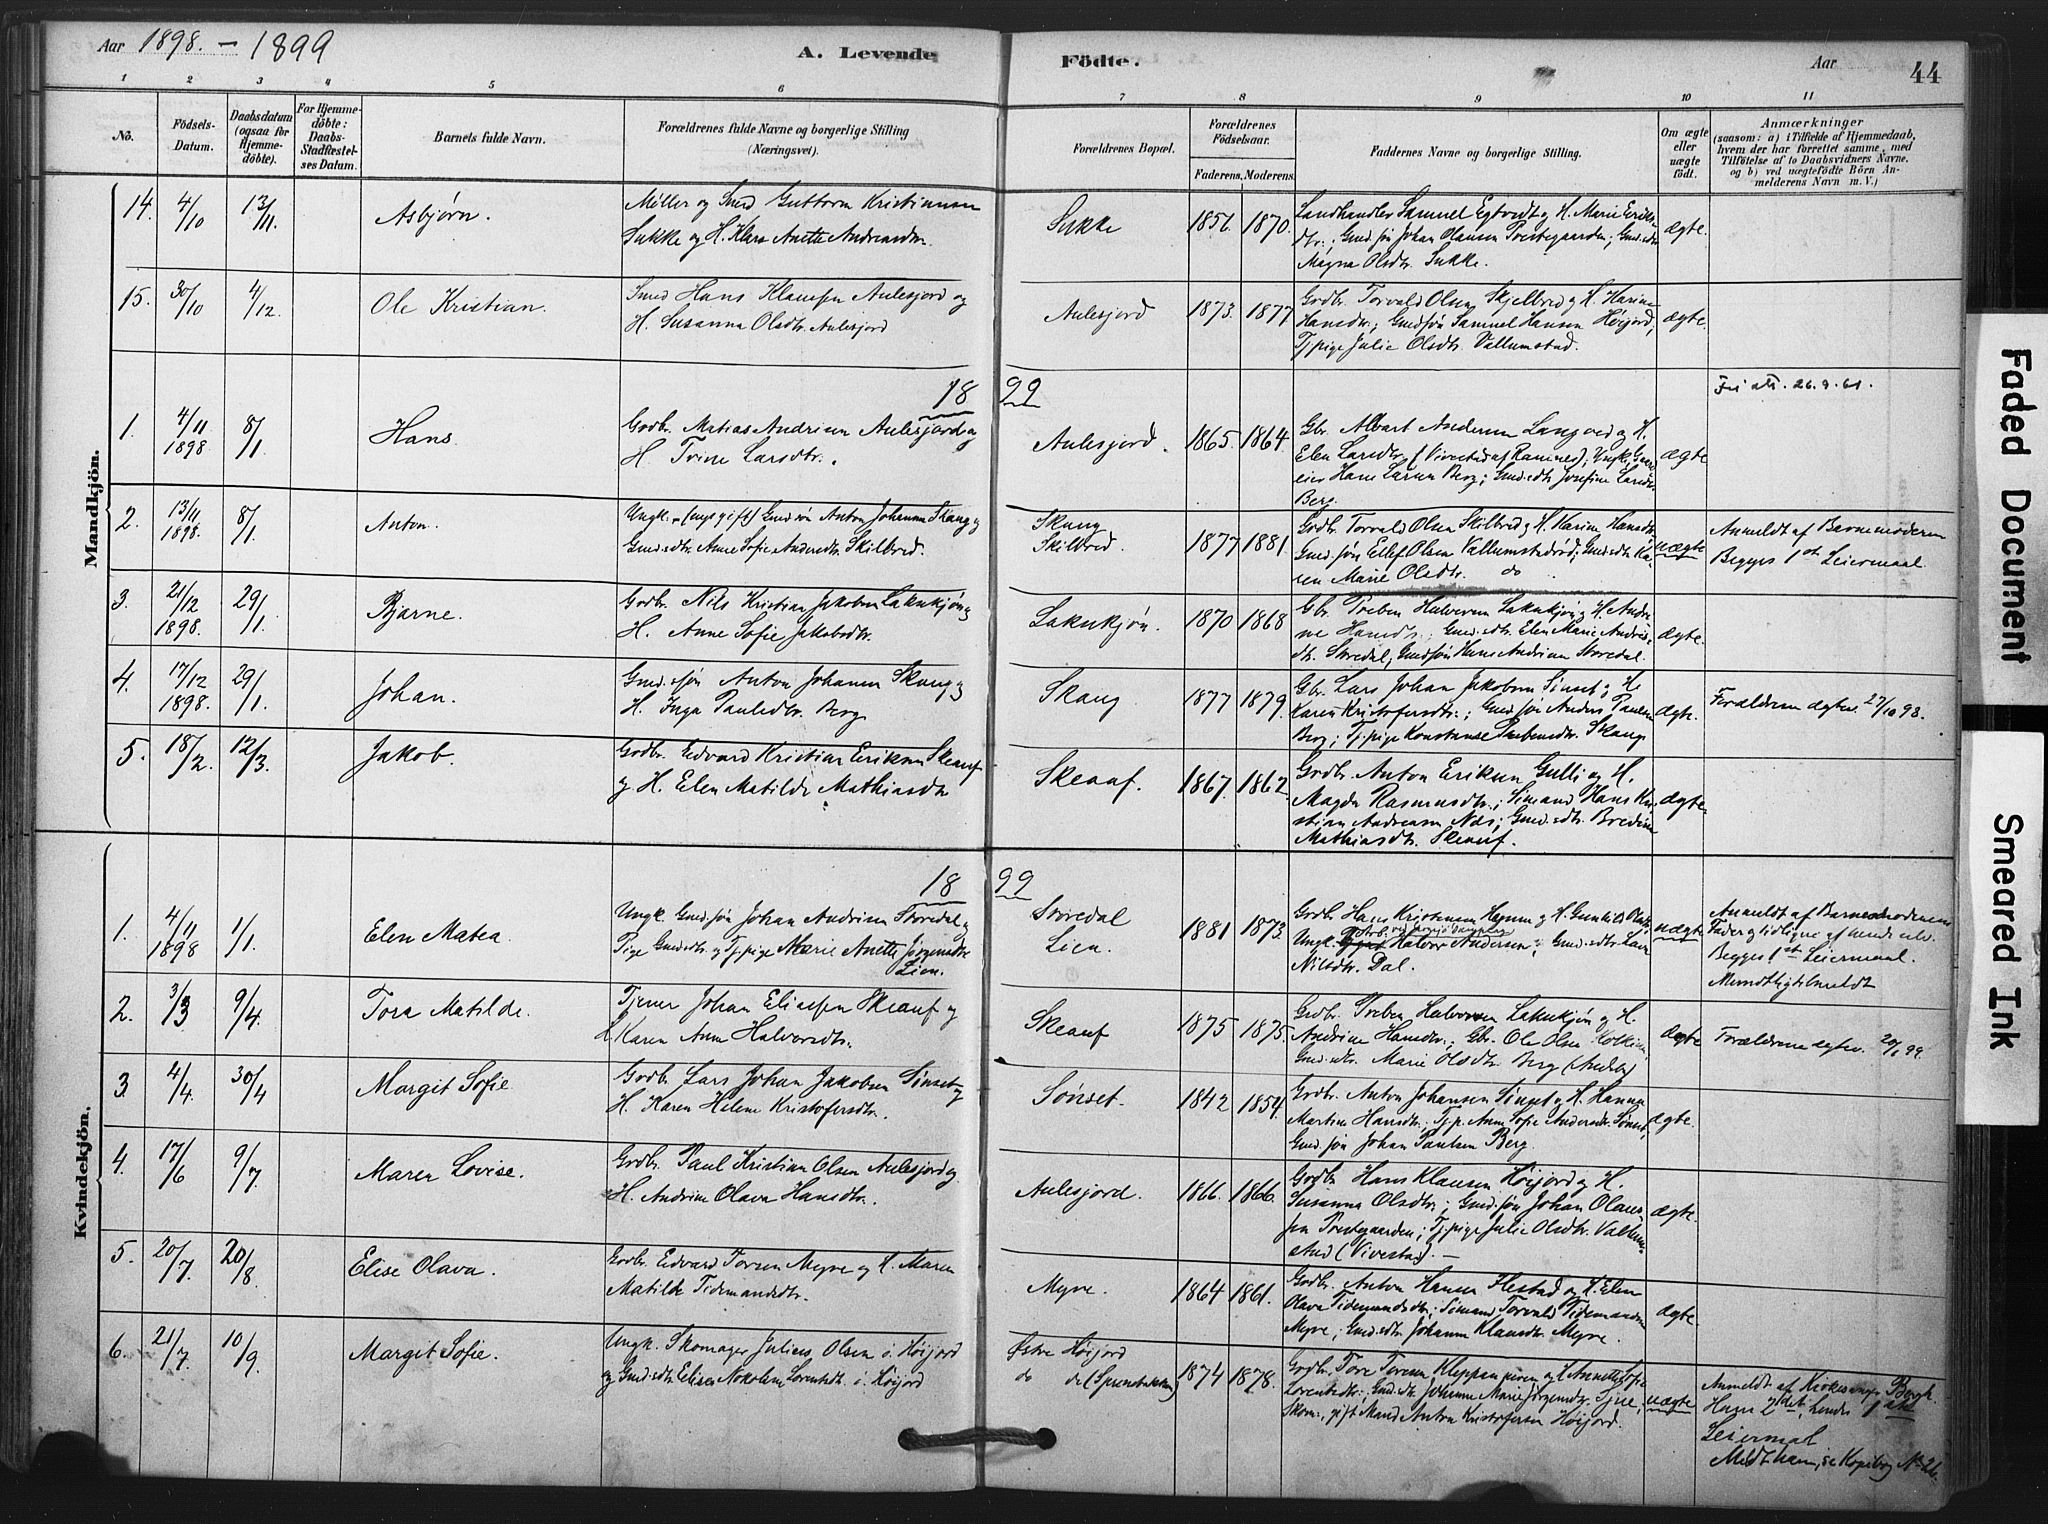 Aar 1898. – 1899
A. Levende Födte.
Aar
44
1 2 3 4 5 6 7 8 9 10 11
No.
Födsels-
Datum.
Daabsdatum
(ogsaa for
Hjemme-
döbte).
For Hjemme-
döbte:
Daabs-
Stadfæstel-
ses Datum.
Barnets fulde Navn.
Forældrenes fulde Navne og borgerlige Stilling
(Næringsvei).
Forældrenes Bopæl.
Forældrenes
Födselsaar.
Faderens. Moderens.
Faddernes Navne og borgerlige Stilling.
Om ægte
eller
uægte
födt.
Anmærkninger
(saasom: a) i Tilfælde af Hjemmedaab,
hvem der har forrettet samme, med
Tilföielse af to Daabsvidners Navne.
og b) ved uægtefödte Börn An-
melderens Navn m. V.)
Mandkjön.
14. 4/10 13/11. Asbjørn.
Møller og Smed Guttorm Kristiansen
Sukke og H. Klara Anette Andreasdtr.
Sukke 1851. 1870.
Landhandler Samuel Egtvedt og H. Marie Eriks-
dtr.; Gmd.søn Johan Olausen Prestegaarden; Gmd.sdtr.
Magna Olsdtr. Sukke.
ægte.
15. 30/10 4/12. Ole Kristian.
Smed Hans Klausen Aulesjord og
H. Susanna Olsdtr. Aulesjord
Aulesjord 1873. 1877
Grdbr. Torvald Olsen Skjelbred og H. Karine
Hansdtr.; Gmdsøn Samuel Hansen Høijord,
Tj.pige Julie Olsdtr. Vallumstad.
ægte.
18 99
1. 4/11 1898 8/1 Hans.
Grdbr. Matias Andersen Aulesjord og
H. Trine Larsdtr..
Aulesjord. 1865. 1864.
Gbr. Albert Andersen Langved og H.
Elen Larsdtr. (Vivestad af Ramnes); Ungk.
Hans Larsen Berg; Gmd.sdtr. Josefine Larsdtr.
Berg.
ægte
2. 13/11 1898. 8/1. Anton.
Ungk. (nu gift) Gmd.søn Anton Johansen Skaug og
Gmd.sdtr. Anne Sofie Andersdtr. Skilbred.
Skaug
Skilbred.
1877 1881.
Grdbr. Torvald Olsen Skilbred og H. Karine Hansdtr.
Gmd.søn Ellef Olsen Vallumstadrød; Gmd.sdtr. Ka-
ren Marie Olsdtr. do
uægte
Anmeldt af Barnemoderen
Begges 1ste Leiermaal
3. 21/12 1898. 29/1. Bjarne.
Grdbr. Nils Kristian Jakobsen Laknkjøn og
H. Anne Sofie Jakobsdtr.
Laknkjøn. 1870 1868
Gbr. Preben Halvorsen Laknkjøn og H. Andri-
ne Hansdtr.; Gmd.sdtr. Elen Marie Andreas-
dtr. Storedal; Gmdsøn Hans Andersen Storedal.
ægte.
4. 17/12 1898. 29/1. Johan.
Gmd.søn Anton Johansen Skaug og
H. Inga Paulsdtr. Berg
Skaug 1877 1879.
Gbr. Lars Johan Jakobsen Sønset og H.
Karen Kristofersdtr.; Gmd.søn Anders Paulsen
Berg; Tj.pige Konstanse Prebensdtr. Skaug
ægte.
Forældrene ægtev. 27/10 98.
5. 18/2. 12/3. Jakob.
Grdbr. Edvard Kristian Eriksen Skeauf
og H. Elen Matilde Mathiasdtr
Skeauf. 1867. 1862.
Grdbr. Anton Eriksen Gulli og H.
Magda Rasmusdtr.; Sømand Hans Kri-
stian Andreasen Næs; Gmd.sdtr. Bredine
Mathiasdtr. Skeauf.
ægte.
Kvindekjön.
18 99
1. 4/11 1898 1/1. Elen Matea.
Ungk. Gmd.søn Johan Andersen Storedal og
Pige Gmd.sdtr. og Tj.pige Marie Anette Jørgensdtr.
Lien.
Storedal
Lien.
1881 1873.
Grdbr. Hans Kristensen og H. Gunhild Olsdtr.
Ungk. Halvor Andersen; Gmd.sdtr. Laura
Nilsdtr. Dal.
uægte
Anmeldt af Barnemoderen
Begges 1ste Leiermaal.
2. 3/3 9/4. Tora Matilde.
Tjener Johan Eliassen Skeauf og
H. Karen Anne Halvorsdtr.
Skeauf 1875 1875.
Grdbr. Preben Halvorsen Laknkjøn og H.
Andrine Hansdtr.; Gbr. Ole Olsen
Gmd.sdtr. Marie Olsdtr. Berg (Andebu)
ægte
Forældrene ægtev. 20/1 99.
3. 4/4. 30/4 Margit Sofie
Grdbr. Lars Johan Jakobsen Sønset og
H. Karen Helene Kristofersdtr.
Sønset. 1842 1854.
Grdbr. Anton Johansen Sønset og H. Hanna
Martine Hansdtr.; Tj.p. Anne Sofie Andersdtr. Sønset;
Gmd.søn Johan Paulsen Berg
ægte.
4. 17/6 9/7. Maren Lovise.
Grdbr. Paul Kristian Olsen Aulesjord og
H. Andrine Olava Hansdtr.
Aulesjord. 1866. 1866.
Grdbr. Hans Klausen Høijord og H.
Susanna Olsdtr.; Gmd.søn Johan Olaus-
sen Prestegaarden; Tj.pige Julie Olsdtr. Vallum-
stad (Vivestad). –
ægte.
5. 20/7. 20/8. Elise Olava.
Grdbr. Edvard Torsen Myre og H. Maren
Matilde Tidemandsdtr.
Myre. 1864 1861.
Grdbr. Anton Hansen Flestad og H. Elen
Olava Tidemandsdtr.; Sømand Torvald Tidemandsen
Myre; Gmd.sdtr. Johanne Klausdtr. Myre.
ægte.
6. 21/7. 10/9. Margit Sofie.
Ungk. Skomager Julius Olsen ø. Høijord
og Gmd.sdtr. Elise Nikoline Lorentsdtr. ø. Høijord
Østre Høijord
do do
1874 1878.
Grdbr. Tore Toresen Kleppan og H. Annette Sofie
Lorentsdtr.; Gmd.sdtr. Johanne Marie Jørgensdtr.
Skom., gift Mand Anton Kristofersen Høijord.
uægte
Anmeldt af Kirkesanger Bergh.
Hans 2det, hendes 1ste
Leiermaal
Faded Document
Smeared Ink